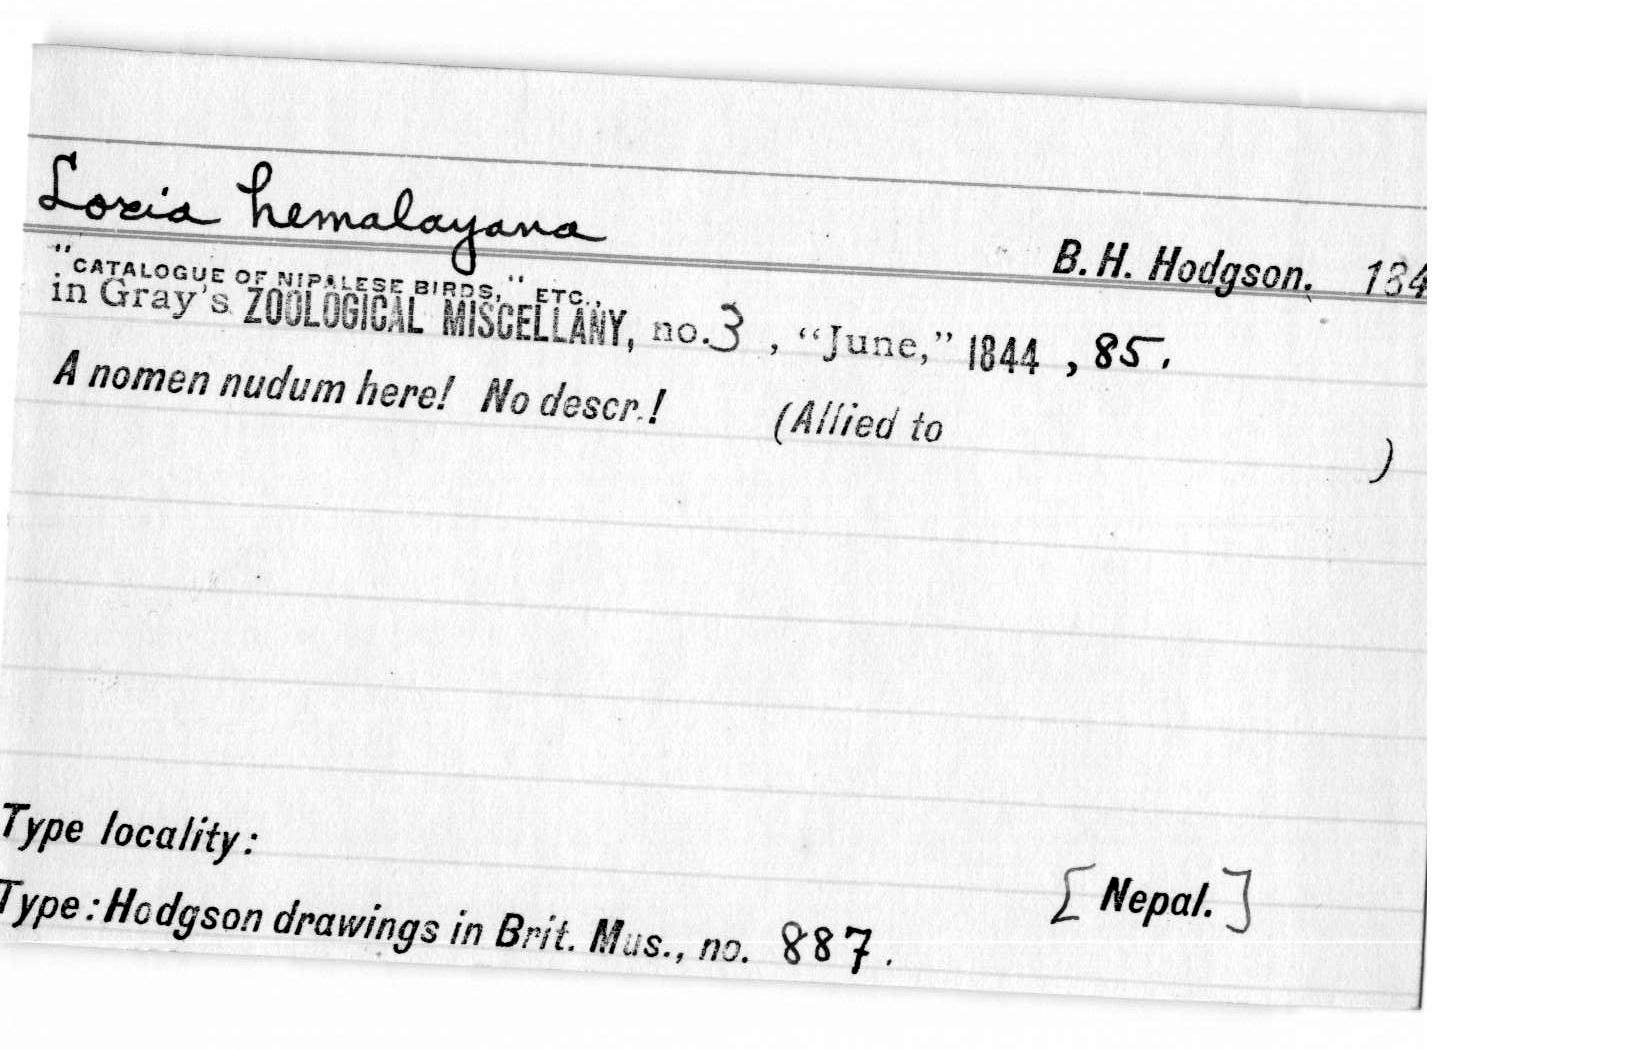 Loxia hemalayana
B. H. Hodgson. 184
"CATALOGUE OF NIPALESE BIRDS," ETC.,
in Gray's ZOOLOGICAL MISCELLANY, no. 3, “June,” 1844, 85.
A nomen nudum here! No descr.! (Allied to )
Type locality:
[Nepal.]
Type: Hodgson drawings in Brit. Mus., no. 887.